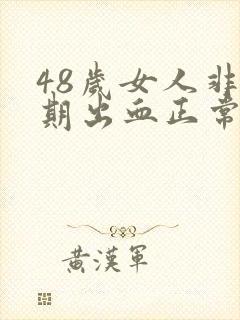 48歲女人非
期出血正常
黃漢軍